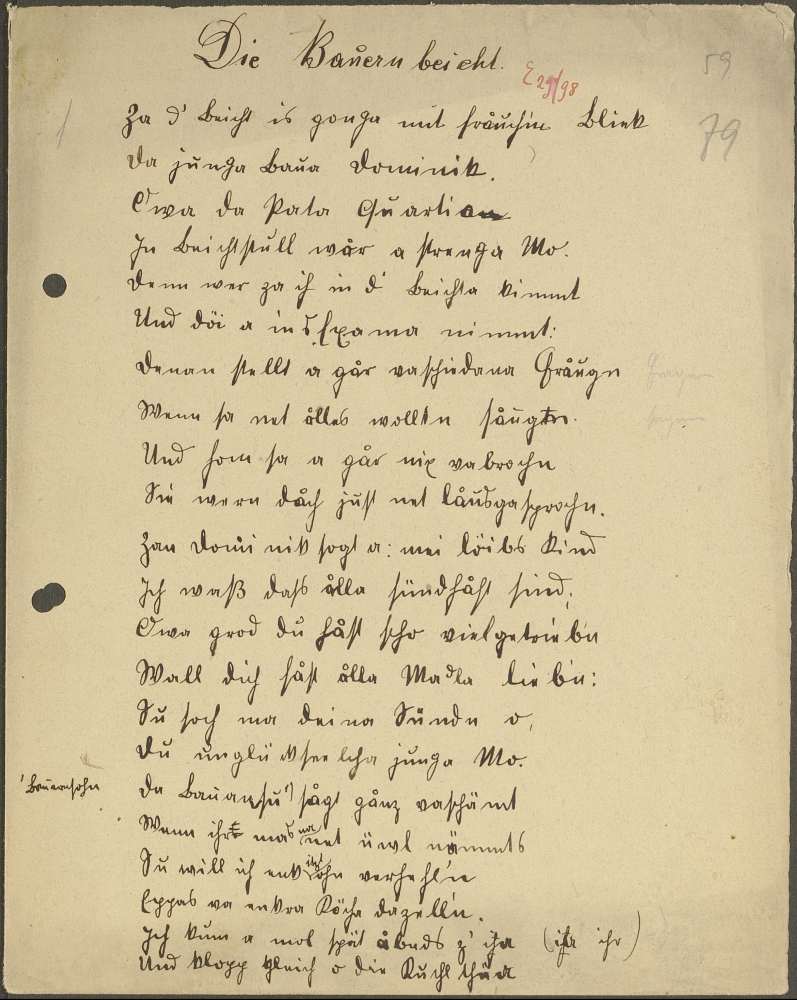 Die Bauernbeicht.
E 29/98
59
79
Za d' Beicht is gonga mit fräuchin Blick
Da junga Baua Dominik.
Owa da Pata Quartian
In Beichtstull wår a strenga Mo.
Denn wer za ih in d' Beichta kimmt
Und döi a ins Exama nimmt:
Denan stellt a går vaschiedana Fråugn
Wenn sa net ålles wolltn såugn.
Und hom sa a går nix vabrochn
Sie wern dåch just net låusgasprochn.
Zan Dominik sogt a: mei löibs Kind
Ich waß dass ålla sündhåft sind;
Owa grod du håst scho viel getriebn
Wall dich håst ålla Madla liebn:
Su soch ma deina Sündn o,
Du unglückseelcha junga Mo.
Da Bauansu' ¹) sågt gånz vaschämt
¹ Bauernsohn
Wenn ihr mas na net üwl nämmts
Su will ich enk itzt ohn verhehl'n
Eppas va enkra Köcha dazelln.
Ich kum a mol spät åbnds z' iha (iha ihr)
Und klopp gleich o die Kuchl thüa